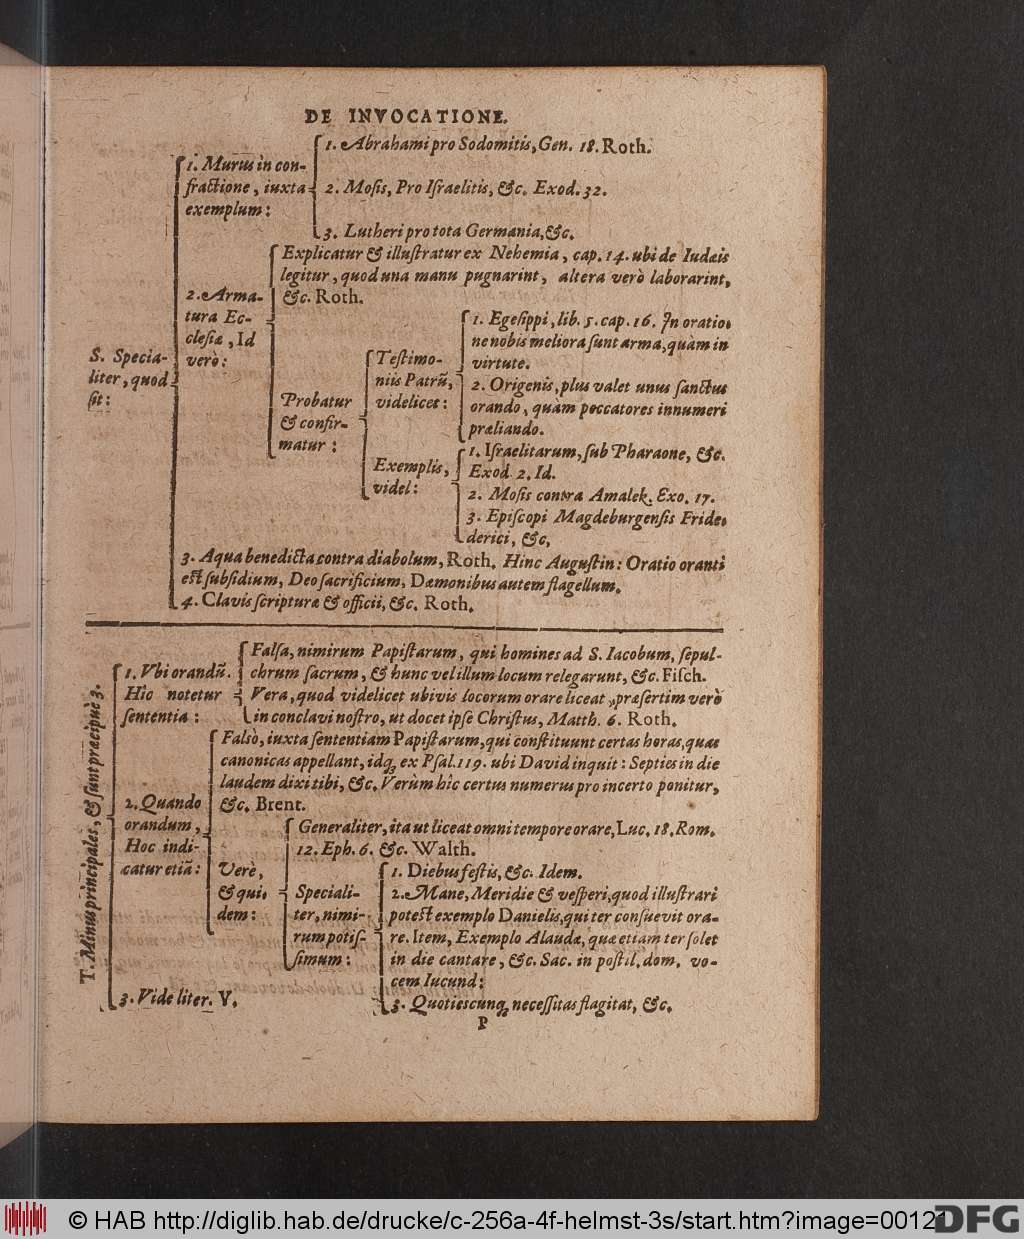 DE INVOCATIONE.
S. Specia-
liter, quod
ſit:
1. Murus in con-
fractione, iuxta
exemplum:
1. Abrahami pro Sodomitis, Gen. 18. Roth.
2. Moſis, Pro Iſraelitis, &c. Exod. 32.
3. Lutheri pro tota Germania, &c.
2. Arma-
tura Ec-
cleſiæ, Id
verò:
Explicatur & illuſtratur ex Nehemia, cap. 14. ubi de Iudæis
legitur, quod una manu pugnarint, altera verò laborarint,
&c. Roth.
Probatur
& confir-
matur:
Teſtimo-
niis Patrũ,
videlicet:
1. Egeſippi, lib. 5. cap. 16. In oratio-
ne nobis meliora ſunt arma, quàm in
virtute.
2. Origenis, plus valet unus ſanctus
orando, quàm peccatores innumeri
præliando.
Exemplis,
videl:
1. Iſraelitarum, ſub Pharaone, &c.
Exod. 2. Id.
2. Moſis contra Amalek. Exo. 17.
3. Epiſcopi Magdeburgenſis Fride-
derici, &c.
3. Aqua benedicta contra diabolum, Roth. Hinc Auguſtin: Oratio oranti
eſt ſubſidium, Deo ſacrificium, Dæmonibus autem flagellum.
4. Clavis ſcripturæ & officii, &c. Roth.
T. Minus principales, & ſunt præcipuè 3.
1. Vbi orandũ.
Hîc notetur
ſententia:
Falſa, nimirum Papiſtarum, qui homines ad S. Iacobum, ſepul-
chrum ſacrum, & hunc vel illum locum relegarunt, &c. Fiſch.
Vera, quod videlicet ubivis locorum orare liceat, præſertim verò
in conclavi noſtro, ut docet ipſe Chriſtus, Matth. 6. Roth.
2. Quando
orandum,
Hoc indi-
catur etiã:
Falsò, iuxta ſententiam Papiſtarum, qui conſtituunt certas horas, quas
canonicas appellant, idq; ex Pſal. 119. ubi David inquit: Septies in die
laudem dixi tibi, &c. Verùm hîc certus numerus pro incerto ponitur,
&c. Brent.
Verè,
& qui-
dem:
Generaliter, ita ut liceat omni tempore orare, Luc. 18. Rom.
12. Eph. 6. &c. Walth.
Speciali-
ter, nimi-
rum potiſ-
ſimum:
1. Diebus feſtis, &c. Idem.
2. Mane, Meridie & veſperi, quod illuſtrari
poteſt exemplo Danielis, qui ter conſuevit ora-
re. Item, Exemplo Alaudæ, quæ etiam ter ſolet
in die cantare, &c. Sac. in poſtil. dom. vo-
cem Iucund:
3. Quotieſcunq; neceſſitas flagitat, &c.
3. Vide liter. V.
P
© HAB http://diglib.hab.de/drucke/c-256a-4f-helmst-3s/start.htm?image=00121
DFG